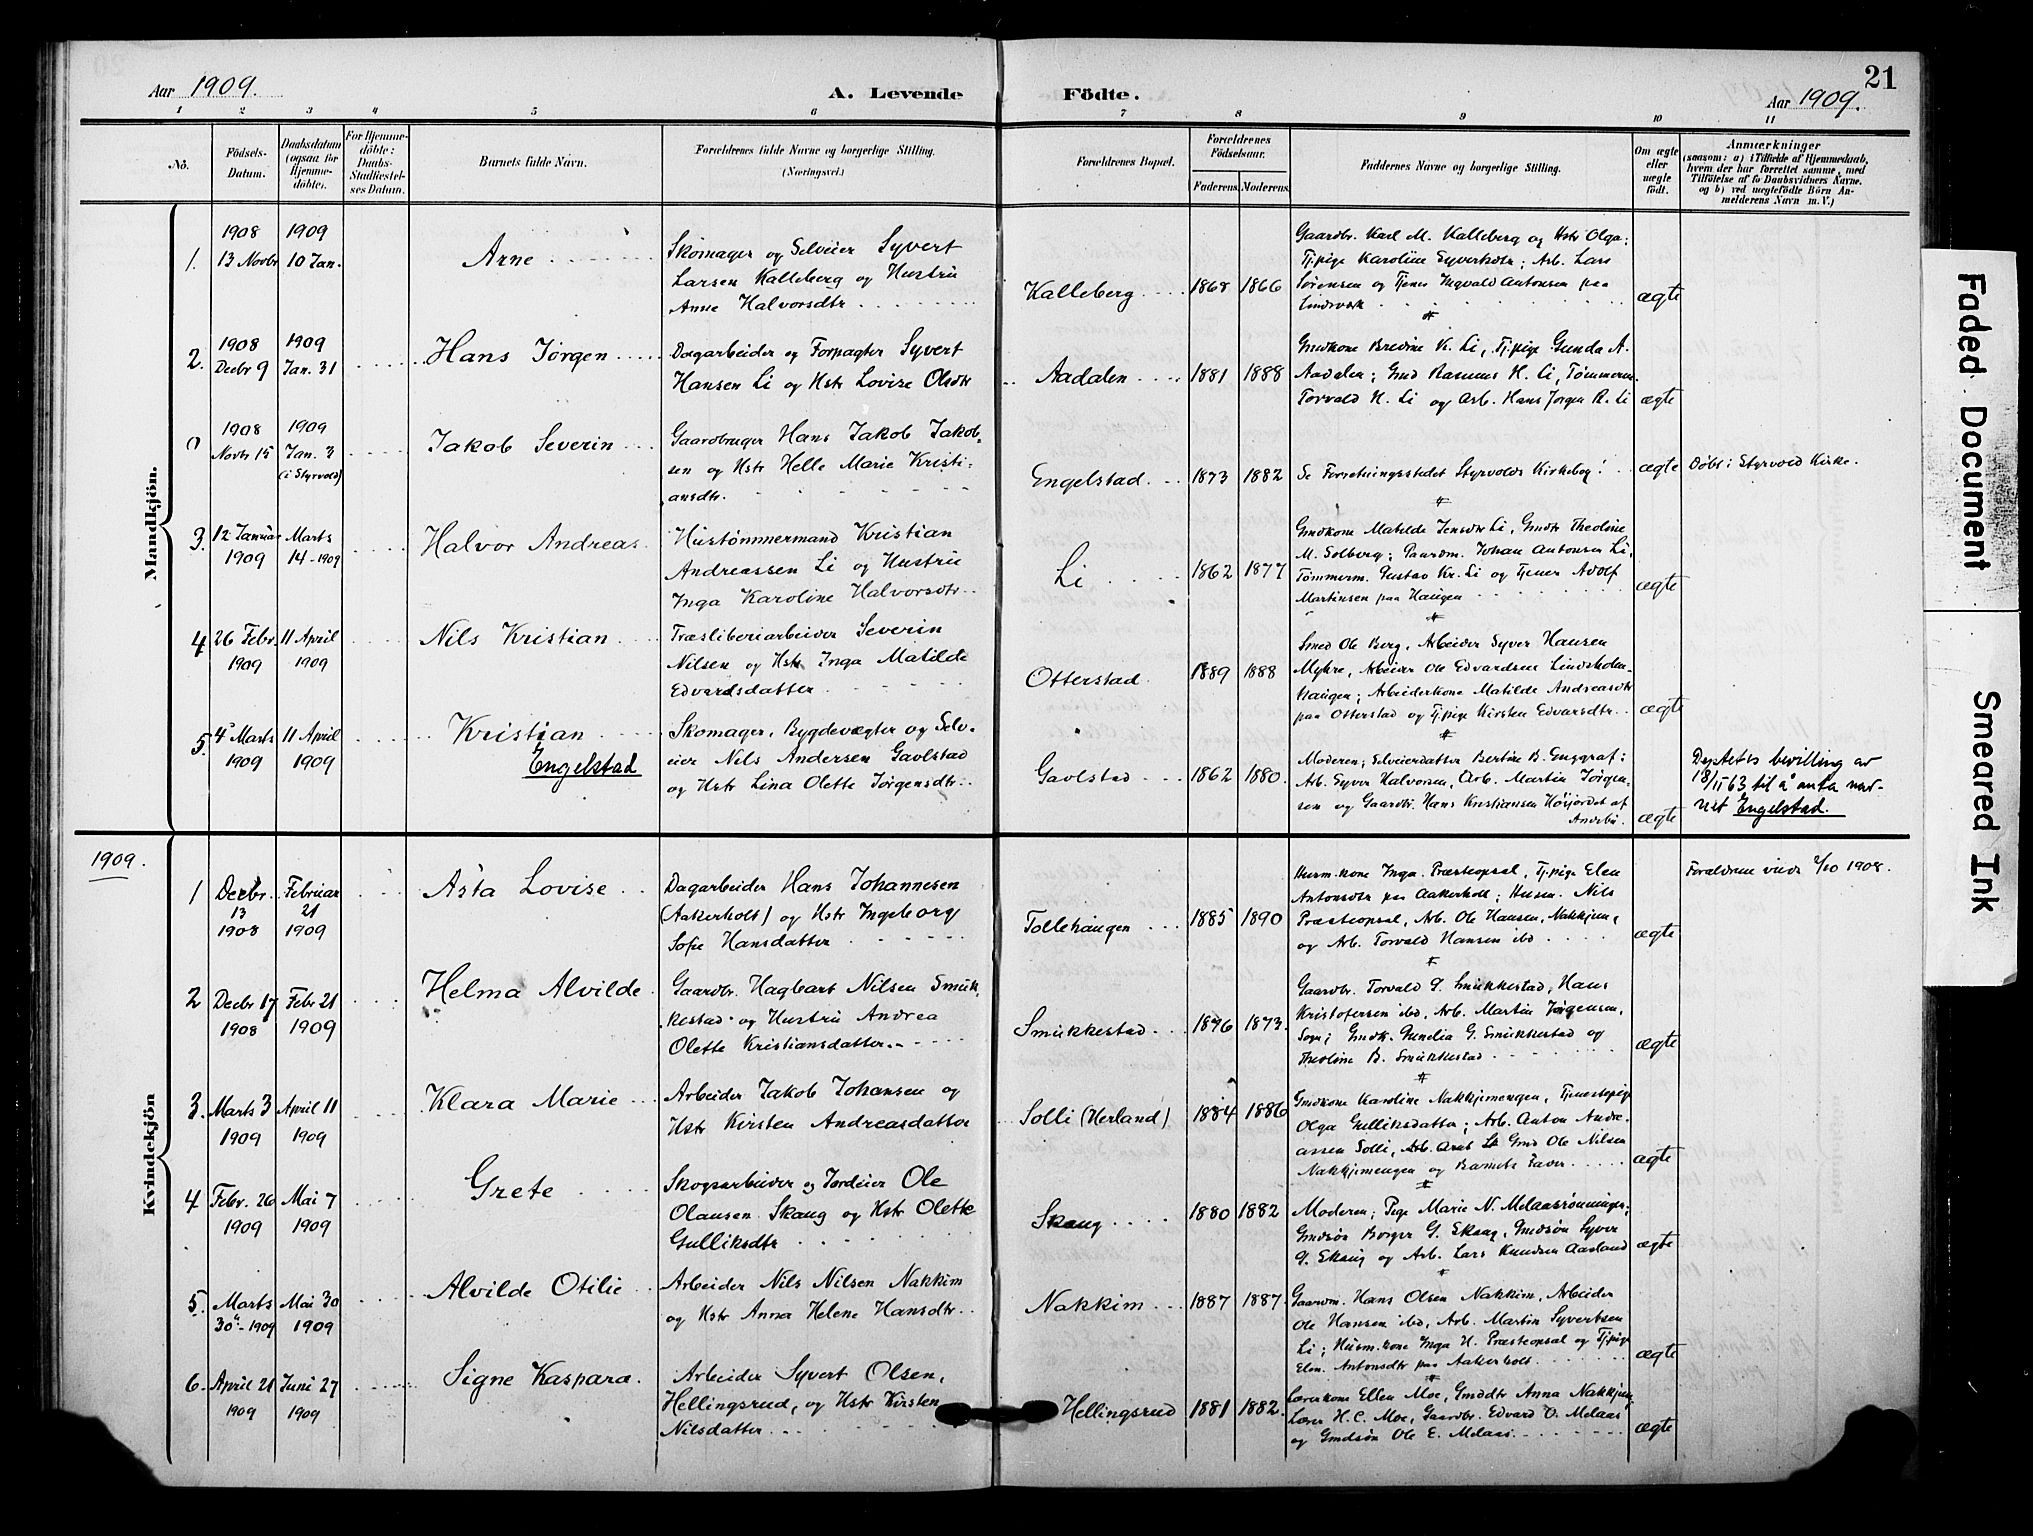 21
Aar 1909. A. Levende Födte. Aar 1909.
1 2 3 4 5 6 7 8 9 10 11
No.
Födsels-
Datum.
Daabsdatum
(ogsaa for
Hjemme-
döbte).
For Hjemme-
döbte:
Daabs-
Stadfæstel-
ses Datum.
Barnets fulde Navn.
Forældrenes fulde Navne og borgerlige Stilling.
(Næringsvei.)
Forældrenes Bopæl.
Forældrenes
Födselsaar.
Faderens. Moderens.
Faddernes Navne og borgerlige Stilling.
Om ægte
eller
uægte
födt.
Anmærkninger
(saasom: a) i Tilfælde af Hjemmedaab,
hvem der har forrettet samme, med
Tilföielse af to Daabsvidners Navne,
og b) ved uægtefödte Börn An-
melderens Navn m. V.)
Mandkjön.
1. 1908 13 Novbr 1909 10 Jan. Arne
Skomager og Selveier Syvert
Larsen Kalleberg og Hustru
Anne Halvorsdtr
Kalleberg 1868 1866
Gaardbr. Karl M. Kalleberg og Hstr Olga;
Tj.pige Karoline Syvertsdtr; Arb. Lars
Sørensen og Tjener Ingvald Antonsen paa
Lindsverk
ægte
2. 1908 Decbr 9 1909 Jan. 31 Hans Jørgen
Dagarbeider og Forpagter Syvert
Hansen Li og Hstr Lovise Olsdtr
Aadalen 1881 1888
Gmdkone Bredine K. Li, Tj.pige Gunda A.
Aadalen; Gmd Rasmus H. Li, Tømmerm.
Torvald H. Li og Arb. Hans Jørgen R. Li
ægte
0 1908 Novbr 15 1909 Jan. 3 (i Styrvold) Jakob Severin
Gaardbruger Hans Jakob Jakob-
sen og Hstr Helle Marie Kristi-
ansdtr.
Engelstad 1873 1882
Se Forretningsstedet Styrvolds Kirkebog!
ægte
Døbt i Styrvold Kirke.
3. 12 Januar 1909 Marts 14 - 1909 Halvor Andreas
Hustømmermand Kristian
Andreassen Li og Hustru
Inga Karoline Halvorsdtr
Li 1862 1877
Gmdkone Matilde Jensdtr Li, Gmdtr Theoline
M. Solberg; Gaardm. Johan Antonsen Li,
Tømmerm. Gustav Kr. Li og Tjener Adolf
Martinsen paa Haugen
ægte
4. 26 Febr. 1909 11 April 1909 Nils Kristian
Træsliberiarbeider Severin
Nilsen og Hstr Inga Matilde
Edvardsdatter
Otterstad 1889 1888
Smed Ole Berg, Arbeider Syver Hansen
Myhre, Arbeider Ole Edvardsen Lindsholm-
haugen; Arbeiderkone Matilde Andreasdtr
paa Otterstad og Tj.pige Kirsten Edvarsdtr.
ægte
5. 4 Marts 1909 11 April 1909 Kristian
Engelstad
Skomager, Bygdevægter og Selv-
eier Nils Andersen Gavlstad
og Hstr Lina Olette Jørgensdtr
Gavlstad 1862 1880
Moderen; Selveierdatter Bertine B. ;
Arb. Syver Halvorsen, Arb. Martin Jørgen-
sen og Gaardbr. Hans Kristiansen Høijordet af
Andebu.
ægte
Dep.tets bevilling av
18/11 63 til å anta nav-
net Engelstad.
Kvindekjön
1909.
1 Decbr. 13 1908 Februar 21 1909 Asta Lovise
Dagarbeider Hans Johannesen
(Aakerholt) og Hstr Ingeborg
Sofie Hansdatter
Tollehaugen 1885 1890
Husm.kone Inga Præsteopsal, Tj.pige Elen
Antonsdtr paa Aakerholt; Husm. Nils
Præsteopsal, Arb. Ole Hansen, Nakkjem,
og Arb. Torvald Hansen ibd
ægte
Forældrene viede 2/10 1908.
2 Decbr 17 1908 Febr 21 1909 Helma Alvilde
Gaardbr. Hagbart Nilsen Smuk-
kestad og Hustru Andrea
Olette Kristiansdatter
Smukkestad 1876 1873
Gaardbr. Torvald G. Smukkestad, Hans
Kristofersen ibd, Arb. Martin Jørgensen,
Sogn; Gmdk. Gunelia G. Smukkestad og
Theoline B. Smukkestad
ægte
3. Marts 3 1909 April 11 1909 Klara Marie
Arbeider Jakob Johansen og
Hstr Kirsten Andreasdatter
Solli (Herland) 1884 1886
Gmdkone Karoline Nakkjemengen, Tjenestepige
Olga Gulliksdatter; Arb. Anton Andre-
assen Solli, Gmd Ole Nilsen
Nakkjemengen og Barnets Fader
ægte
4 Febr. 26 1909 Mai 7 1909 Grete
Skogsarbeider og Jordeier Ole
Olausen Skaug og Hstr Olette
Gulliksdtr
Skaug 1880 1882
Moderen; Pige Marie N. Melaasrønningen;
Gmdsøn Borger G. Skaug, Gmdsøn Syver
G. Skaug og Arb. Lars Knudsen Aasland
ægte
5. Marts 30 - 1909 Mai 30 1909 Alvilde Otilie
Arbeider Nils Nilsen Nakkim
og Hstr Anna Helene Hansdtr
Nakkim 1887 1887
Gaardm. Hans Olsen Nakkim, Arbeider
Ole Hansen ibd, Arb. Martin Syvertsen
Li; Husm.kone Inga H. Præsteopsal og Tj.pige
Elen Antonsdtr paa Aakerholt
ægte
6. April 21 1909 Juni 27 1909 Signe Kaspara
Arbeider Syvert Olsen,
Hellingsrud, og Hstr Kirsten
Nilsdatter
Hellingsrud 1881 1882
Lærerkone Ellen Moe, Gmddtr Anna Nakkjem,
Lærer H. C. Moe, Gaardbr. Edvard O. Melaas
og Gmdsøn Ole E. Melaas
ægte
Faded Document
Smeared Ink